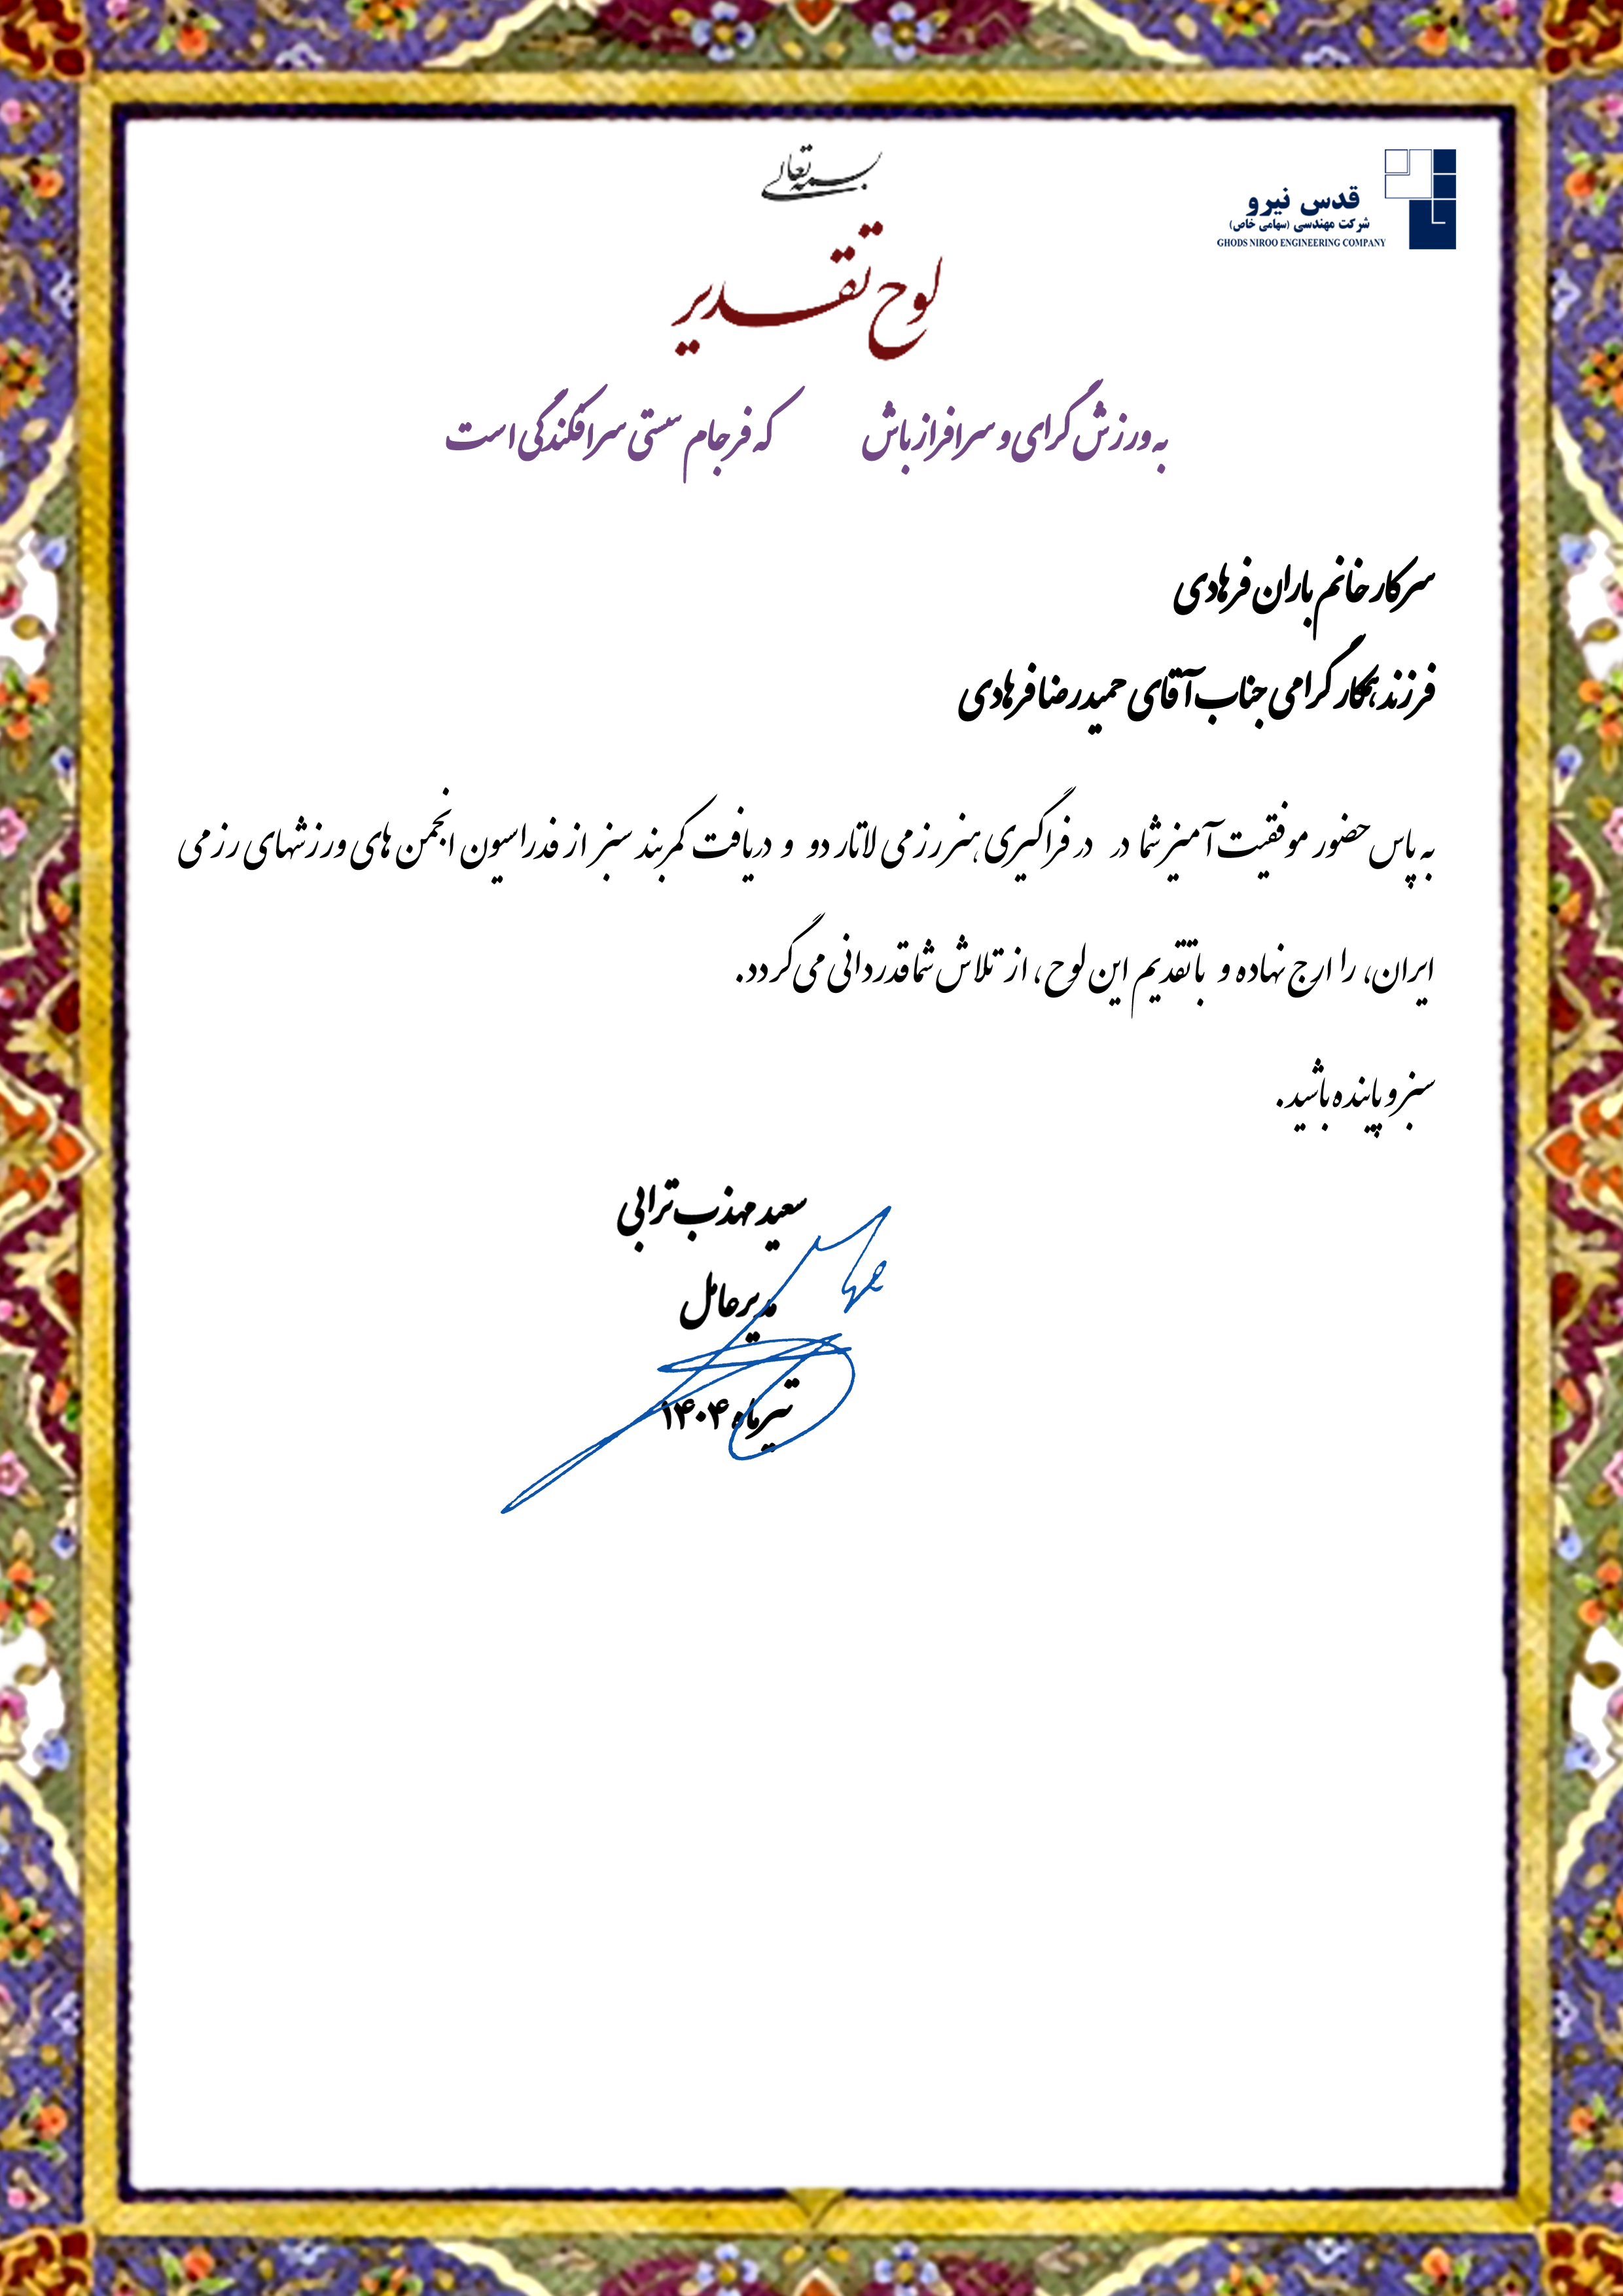 بسمه تعالی
قدس نیرو
شرکت مهندسی (سهامی خاص)
GHODS NIROO ENGINEERING COMPANY
لوح تقدیر
به ورزش گرای و سرافراز باش که فرجام سستی سرافکندگی است
سرکار خانم باران فرهادی
فرزند همکار گرامی جناب آقای حمیدرضا فرهادی
به پاس حضور موفقیت آمیز شما در در فراگیری هنر رزمی لاتار دو و دریافت کمربند سبز از فدراسیون انجمن های ورزشهای رزمی
ایران، را ارج نهاده و با تقدیم این لوح، از تلاش شما قدردانی می گردد.
سبز و پاینده باشید.
سعید مهذب ترابی
مدیرعامل
تیرماه ۱۴۰۴